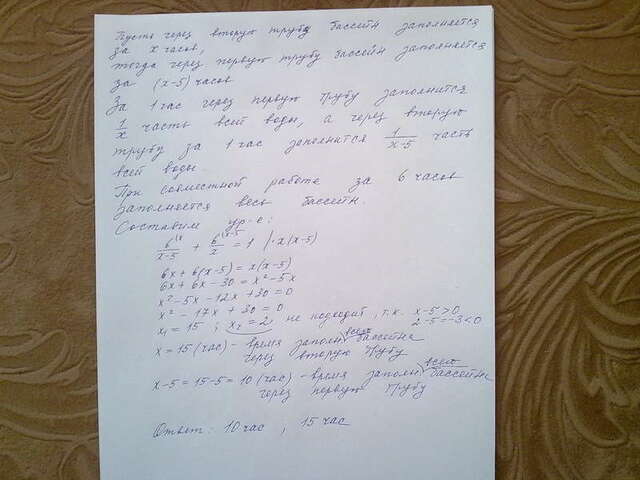 Пусть через вторую трубу бассейн заполняется
за x часов,
тогда через первую трубу бассейн заполняется
за (x-5) часов
За 1 час через первую трубу заполнится
1/x часть всей воды, а через вторую
трубу за 1 час заполнится 1/(x-5) часть
всей воды.
При совместной работе за 6 часов
заполняется весь бассейн.
Составим ур-е:
6^(x/(x-5) + 6^(x-5/x = 1 |·x(x-5)
6x + 6(x-5) = x(x-5)
6x + 6x - 30 = x² - 5x
x² - 5x - 12x + 30 = 0
x² - 17x + 30 = 0
x₁ = 15 ; x₂ = 2 не подходит, т.к. x-5>0
2-5=-3<0
x = 15 (час) - время заполн. всего бассейна
через вторую трубу
x-5 = 15-5 = 10 (час) - время заполн. всего бассейна
через первую трубу
Ответ: 10 час, 15 час